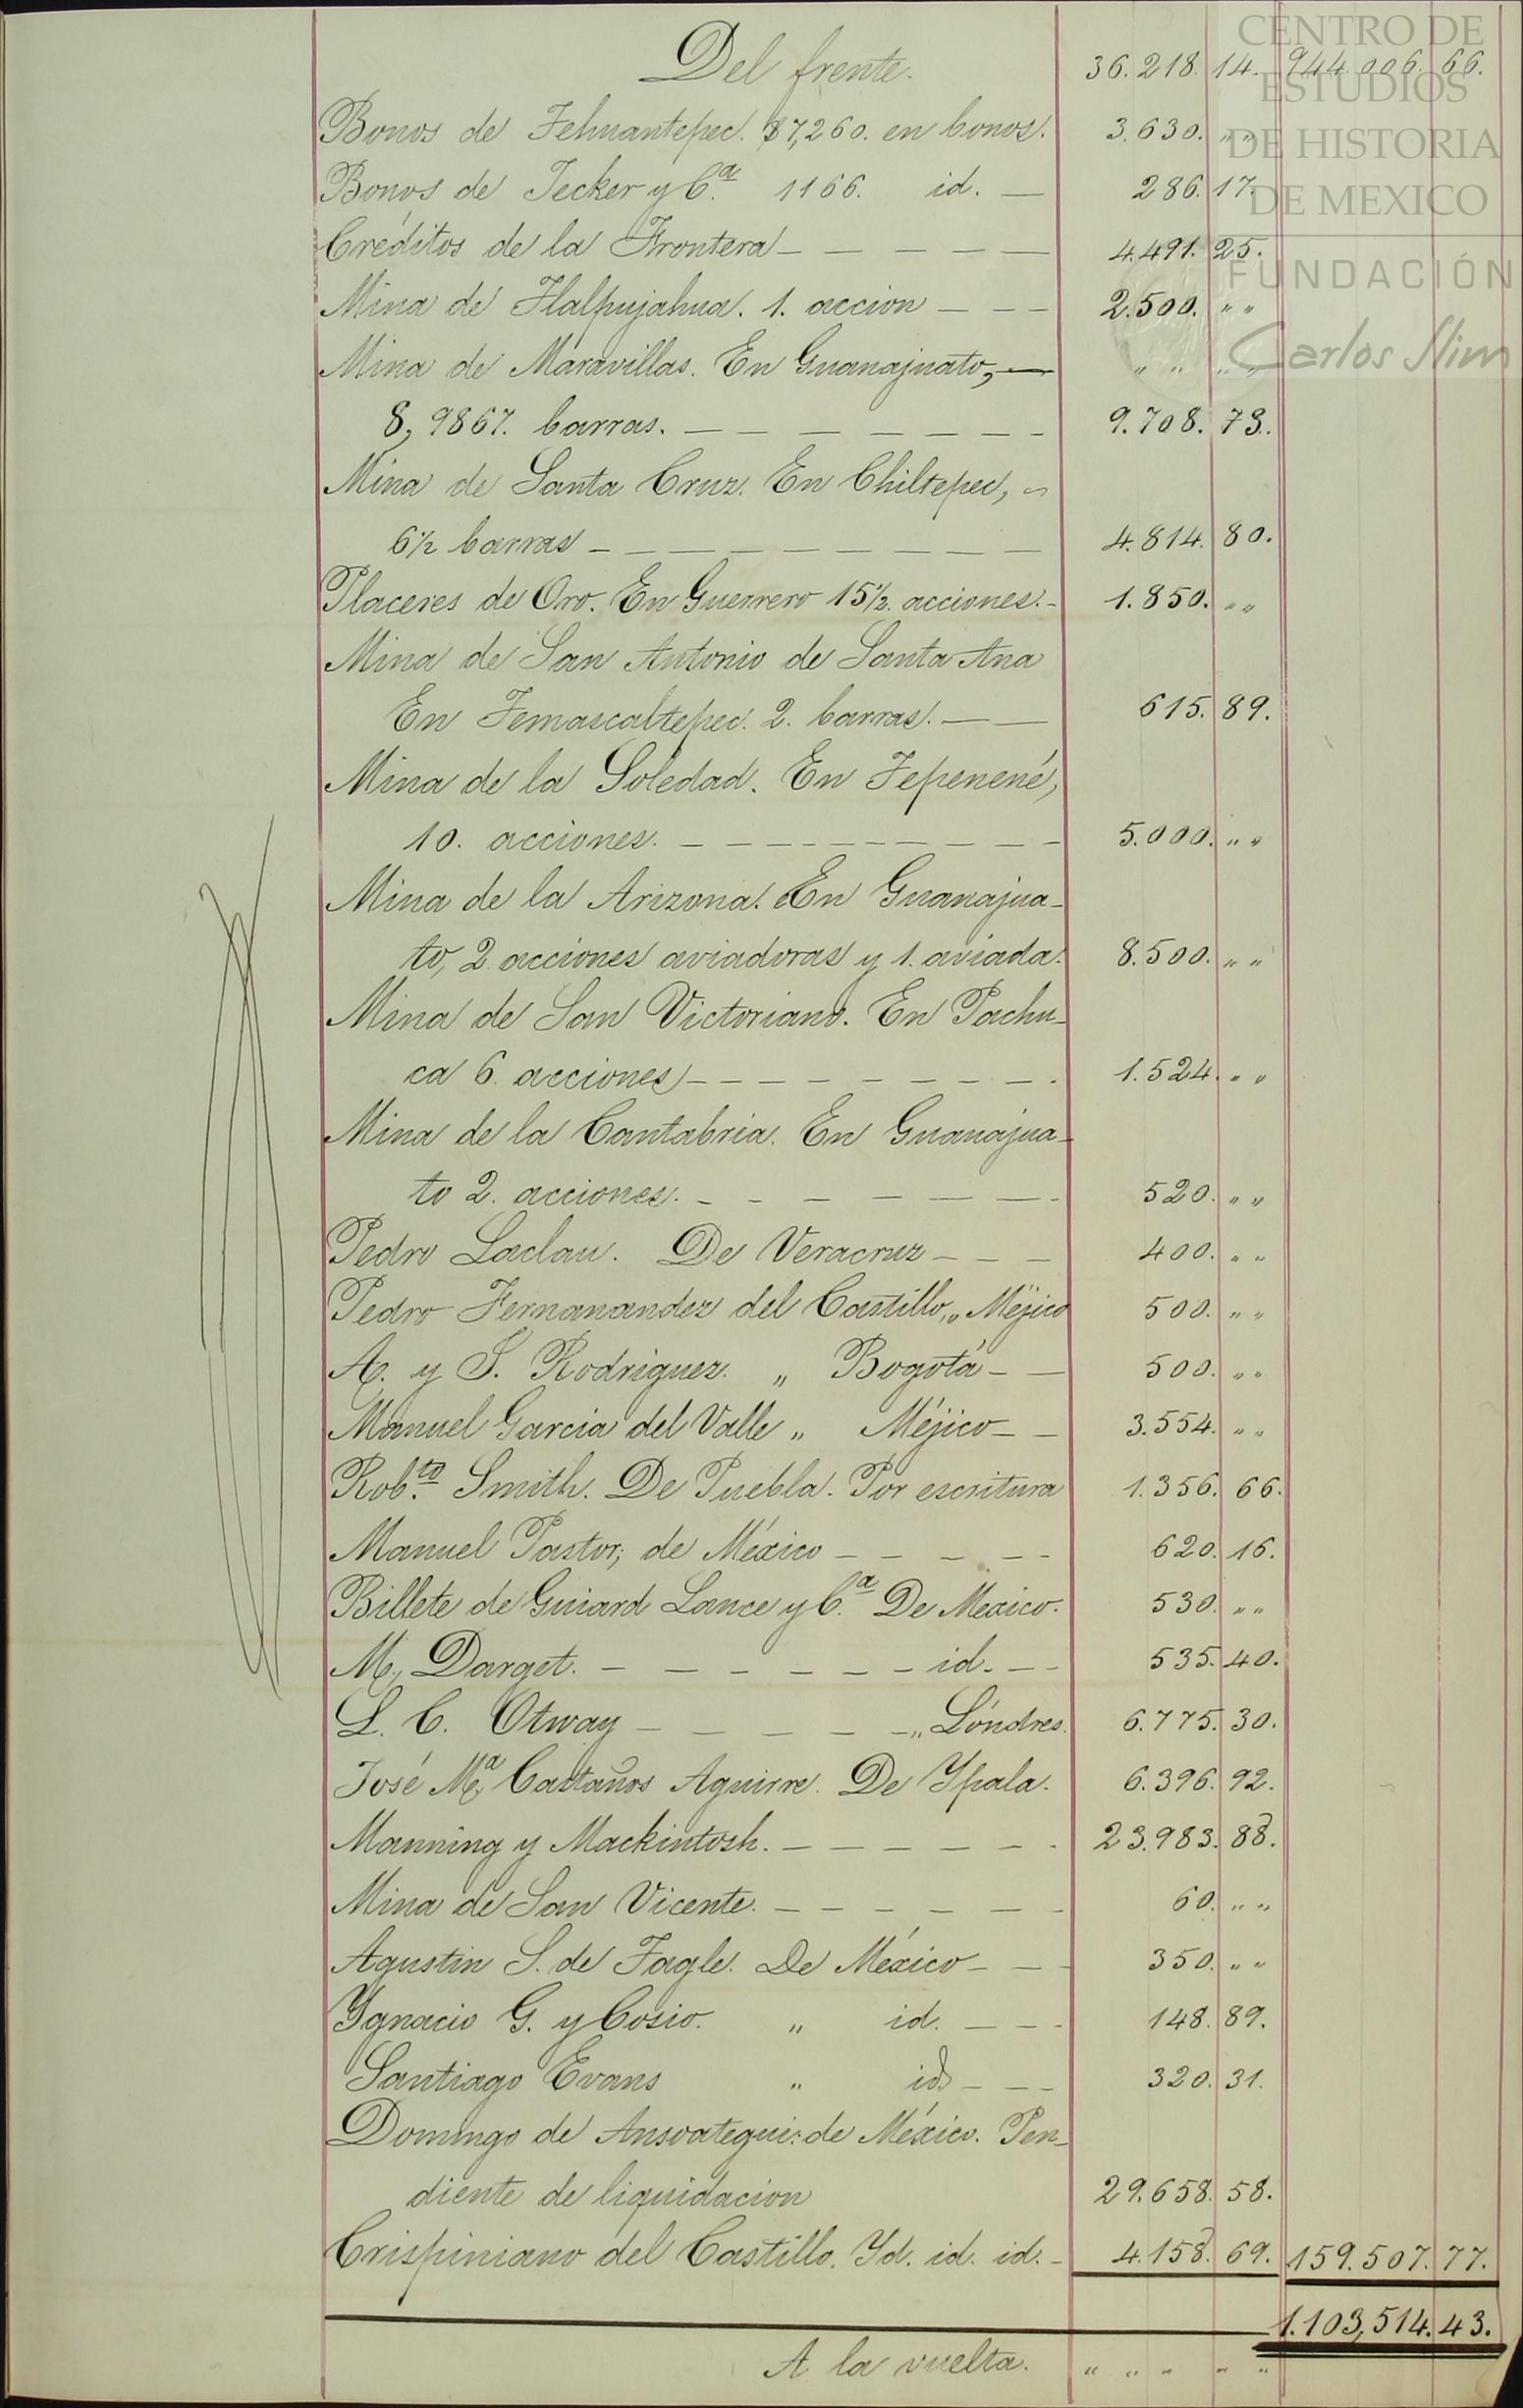 CENTRO DE
ESTUDIOS
DE HISTORIA
DE MEXICO
FUNDACIÓN
Carlos Slim
Del frente. 36.218. 14. 944.006. 66.
Bonos de Tehuantepec. $7,260. en bonos. 3.630. " "
Bonos de Jecker y Cª. 1166. id. — 286. 17.
Créditos de la Frontera — — — — — 4.491. 25.
Mina de Tlalpujahua. 1. accion — — — 2.500. " "
Mina de Maravillas. En Guanajuato, — " " " "
8, 9867. barras. — — — — — — — 9.708. 73.
Mina de Santa Cruz. En Chiltepec,
6½ barras — — — — — — — — 4.814. 80.
Placeres de Oro. En Guerrero 15½. acciones. - 1.850. " "
Mina de San Antonio de Santa Ana
En Temascaltepec. 2. barras. — — 615. 89.
Mina de la Soledad. En Tepenené,
10. acciones. — — — — — — — — 5.000. " "
Mina de la Arizona. En Guanajua-
to, 2 acciones aviadoras y 1. aviada. 8.500. " "
Mina de San Victoriano. En Pachu-
ca 6. acciones — — — — — — — 1.524. " "
Mina de la Cantabria. En Guanajua-
to 2. acciones. — — — — — — — 520. " "
Pedro Laclau. De Veracruz — — — 400. " "
Pedro Fernanandez del Castillo, " Méjico 500. " "
A. y S. Rodriguez. " Bogotá — — 500. " "
Manuel Garcia del Valle " Méjico — — 3.554. " "
Rob.to Smith. De Puebla. Por escritura 1.356. 66.
Manuel Pastor, de México — — — — — 620. 16.
Billete de Guiard Lance y Cª. De Mexico. 530. " "
M., Darget. — — — — — — id. — — 535. 40.
L. C. Otway — — — — — " Lóndres. 6.775. 30.
José Mª. Castaños Aguirre. De Ypala. 6.396. 92.
Manning y Mackintosh. — — — — — — 23.983. 88.
Mina de San Vicente. — — — — — — 60. " "
Agustin S. de Tagle. De México — — 350. " "
Ygnacio G. y Cosio. " id. — — — 148. 89.
Santiago Evans " id — — — 320. 31.
Domingo de Ansoategui: de México. Pen-
diente de liquidacion 29.658. 58.
Crispiniano del Castillo. Yd. id. id. - 4.158. 69. 159.507. 77.
1.103,514. 43.
A la vuelta. " " " " "